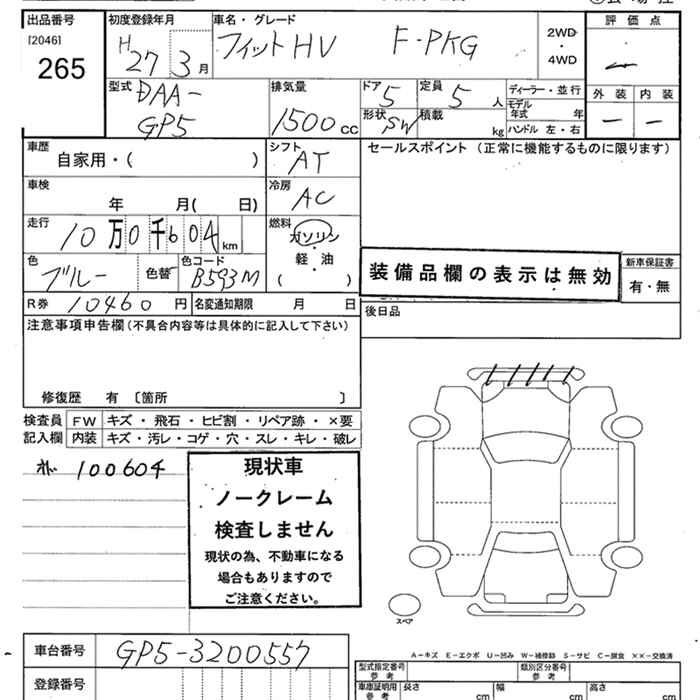 出品番号 初度登録年月 車名・グレード 評価点
[2046] H フィットHV F-PKG 2WD
・
265 27 3月 4WD
外装 内装
型式 DAA- 排気量 ドア 5 定員 5人 ディーラー・並行
モデル年式 年
GP5 1500cc 形状 SW 積載 kg ハンドル 左・右
車歴 シフト セールスポイント (正常に機能するものに限ります)
自家用・( ) AT
車検 冷房
年 月( 日) AC
走行 燃料
10万0千604km ガソリン
軽・油
( )
色 色替 色コード
ブルー B593M
装備品欄の表示は無効
新車保証書
有・無
R券 10460円 名変通知期限 月 日 後日品
注意事項申告欄(不具合内容等は具体的に記入して下さい)
修復歴 有 〔箇所 〕
検査員 FW キズ・飛石・ヒビ割・リペア跡・×要
記入欄 内装 キズ・汚レ・コゲ・穴・スレ・キレ・破レ
100604
現状車
ノークレーム
検査しません
現状の為、不動車になる
場合もありますので
ご注意ください。
スペア
車台番号 GP5-3200557
A-キズ E-エクボ U-凹み W-補修跡 S-サビ C-腐食 ××-交換済
登録番号
型式指定番号 参考 類別区分番号 参考
車庫証明用 参考 長さ cm 幅 cm 高さ cm